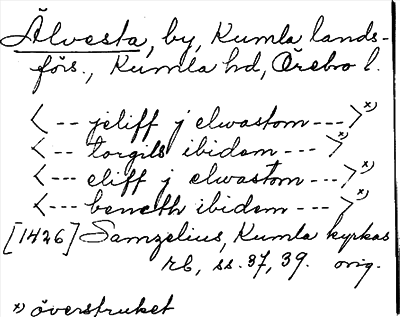 Älvesta, by, Kumla lands-
förs., Kumla hd, Örebro l.
<-- jeliff j elwastom --->x)
<-- torgils ibidem --->x)
<-- eliff j elwastom --->x)
<--- beneth ibidem --->x)
[1426] Samzelius, Kumla kyrkas
rb, ss. 37, 39. orig.
x) överstruket